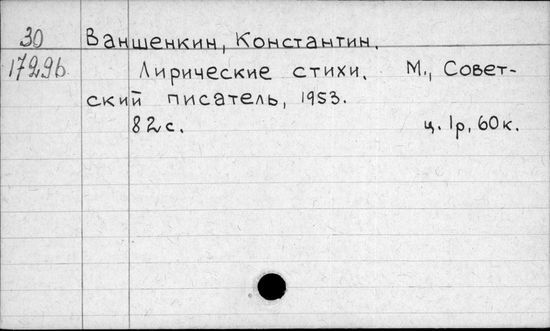 30 Ваншенкин, Константин.
17296 Лирические стихи. М., Совет-
ский писатель, 1953.
82с. ц. 1р, 60к.